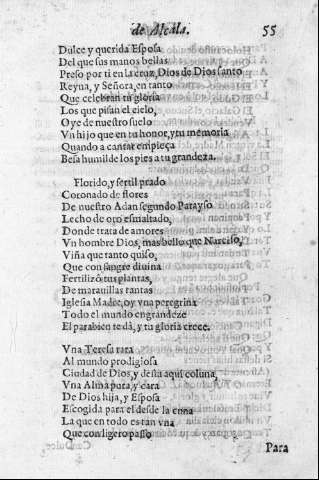 de Alcala. 55
Dulce y querida Esposa
Del que sus manos bellas
Preso por ti en la cruz, Dios de Dios santo
Reyna, y Señora, en tanto
Que celebran tu gloria
Los que pisan el cielo,
Oye de nuestro suelo
Vn hijo que en tu honor, y tu memoria
Quando a cantar empieça
Besa humilde los pies a tu grandeza.
Florido, y fertil prado
Coronado de flores
De nuestro Adan segundo Parayso
Lecho de oro esmaltado,
Donde trata de amores
Vn hombre Dios, mas bello que Narciso,
Viña que tanto quiso,
Que con sangre diuina
Fertilizó tus plantas,
De marauillas tantas
Iglesia Madre, oy vna peregrina
Todo el mundo engrandeze
El parabien te dà, y tu gloria crece.
Vna Teresa rara
Al mundo prodigiosa
Ciudad de Dios, y desta aquì coluna,
Vna Alma pura, y cara
De Dios hija, y Esposa
Escogida para el desde la cuna
La que en todo es tan vna
Que con ligero passo
Para